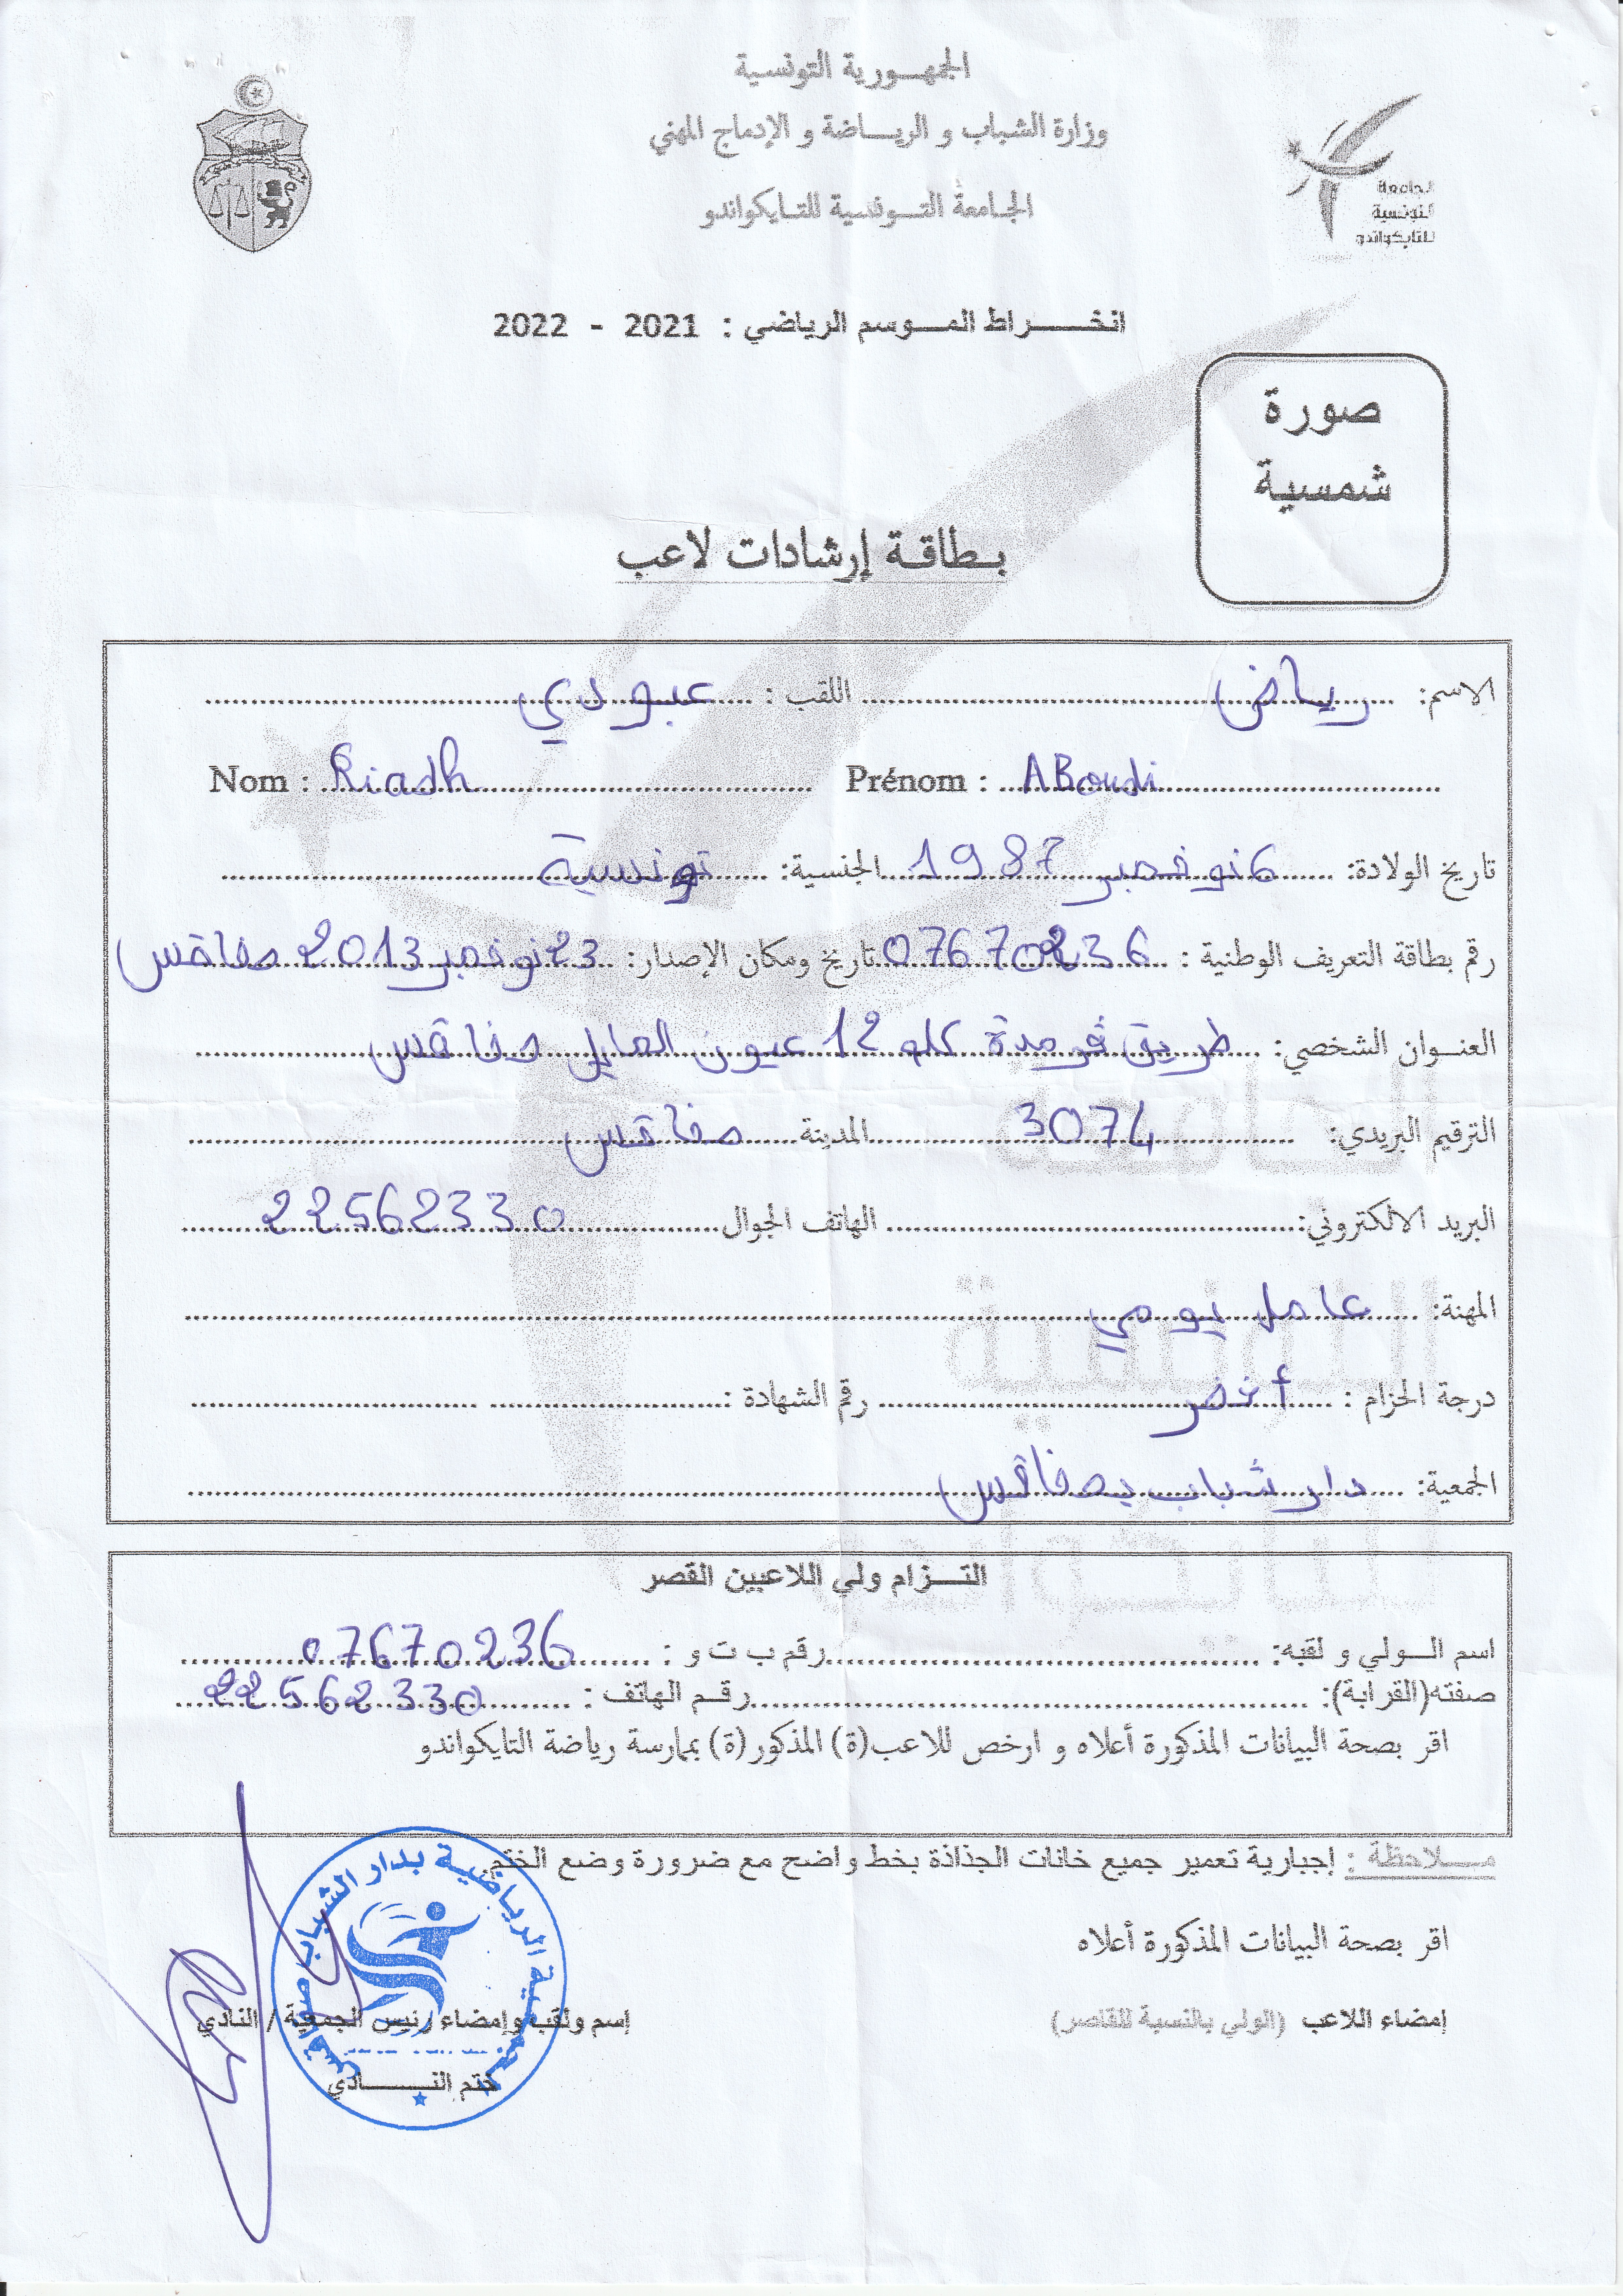 الجمهورية التونسية
وزارة الشباب و الرياضة و الإدماج المهني
الجامعة التونسية للتايكواندو
الجامعة
التونسية
للتايكواندو
انخراط الموسم الرياضي : 2021 - 2022
صورة
شمسية
بطاقة إرشادات لاعب
الاسم: رياض اللقب : عبودي
Nom : Riadh Prénom : ABoudi
تاريخ الولادة: 6 نوفمبر 1987 الجنسية: تونسية
رقم بطاقة التعريف الوطنية : 07670236 تاريخ ومكان الإصدار: 23 نوفمبر 2013 صفاقس
العنوان الشخصي: طريق قرمدة كلم 12 عيون المايل صفاقس
الترقيم البريدي: 3074 المدينة صفاقس
البريد الالكتروني: الهاتف الجوال 22562330
المهنة: عامل يومي
درجة الحزام : أخضر رقم الشهادة :
الجمعية: دار شباب بصفاقس
التزام ولي اللاعبين القصر
اسم الولي و لقبه: رقم ب ت و : 07670236
صفته(القرابة): رقم الهاتف : 22562330
اقر بصحة البيانات المذكورة أعلاه و ارخص للاعب(ة) المذكور(ة) بممارسة رياضة التايكواندو
ملاحظة : إجبارية تعمير جميع خانات الجذاذة بخط واضح مع ضرورة وضع الختم
اقر بصحة البيانات المذكورة أعلاه
إمضاء اللاعب (الولي بالنسبة للقاصر) إسم ولقب وإمضاء رئيس الجمعية / النادي
ختم النادي
الجمعية الرياضية بدار الشباب صفاقس